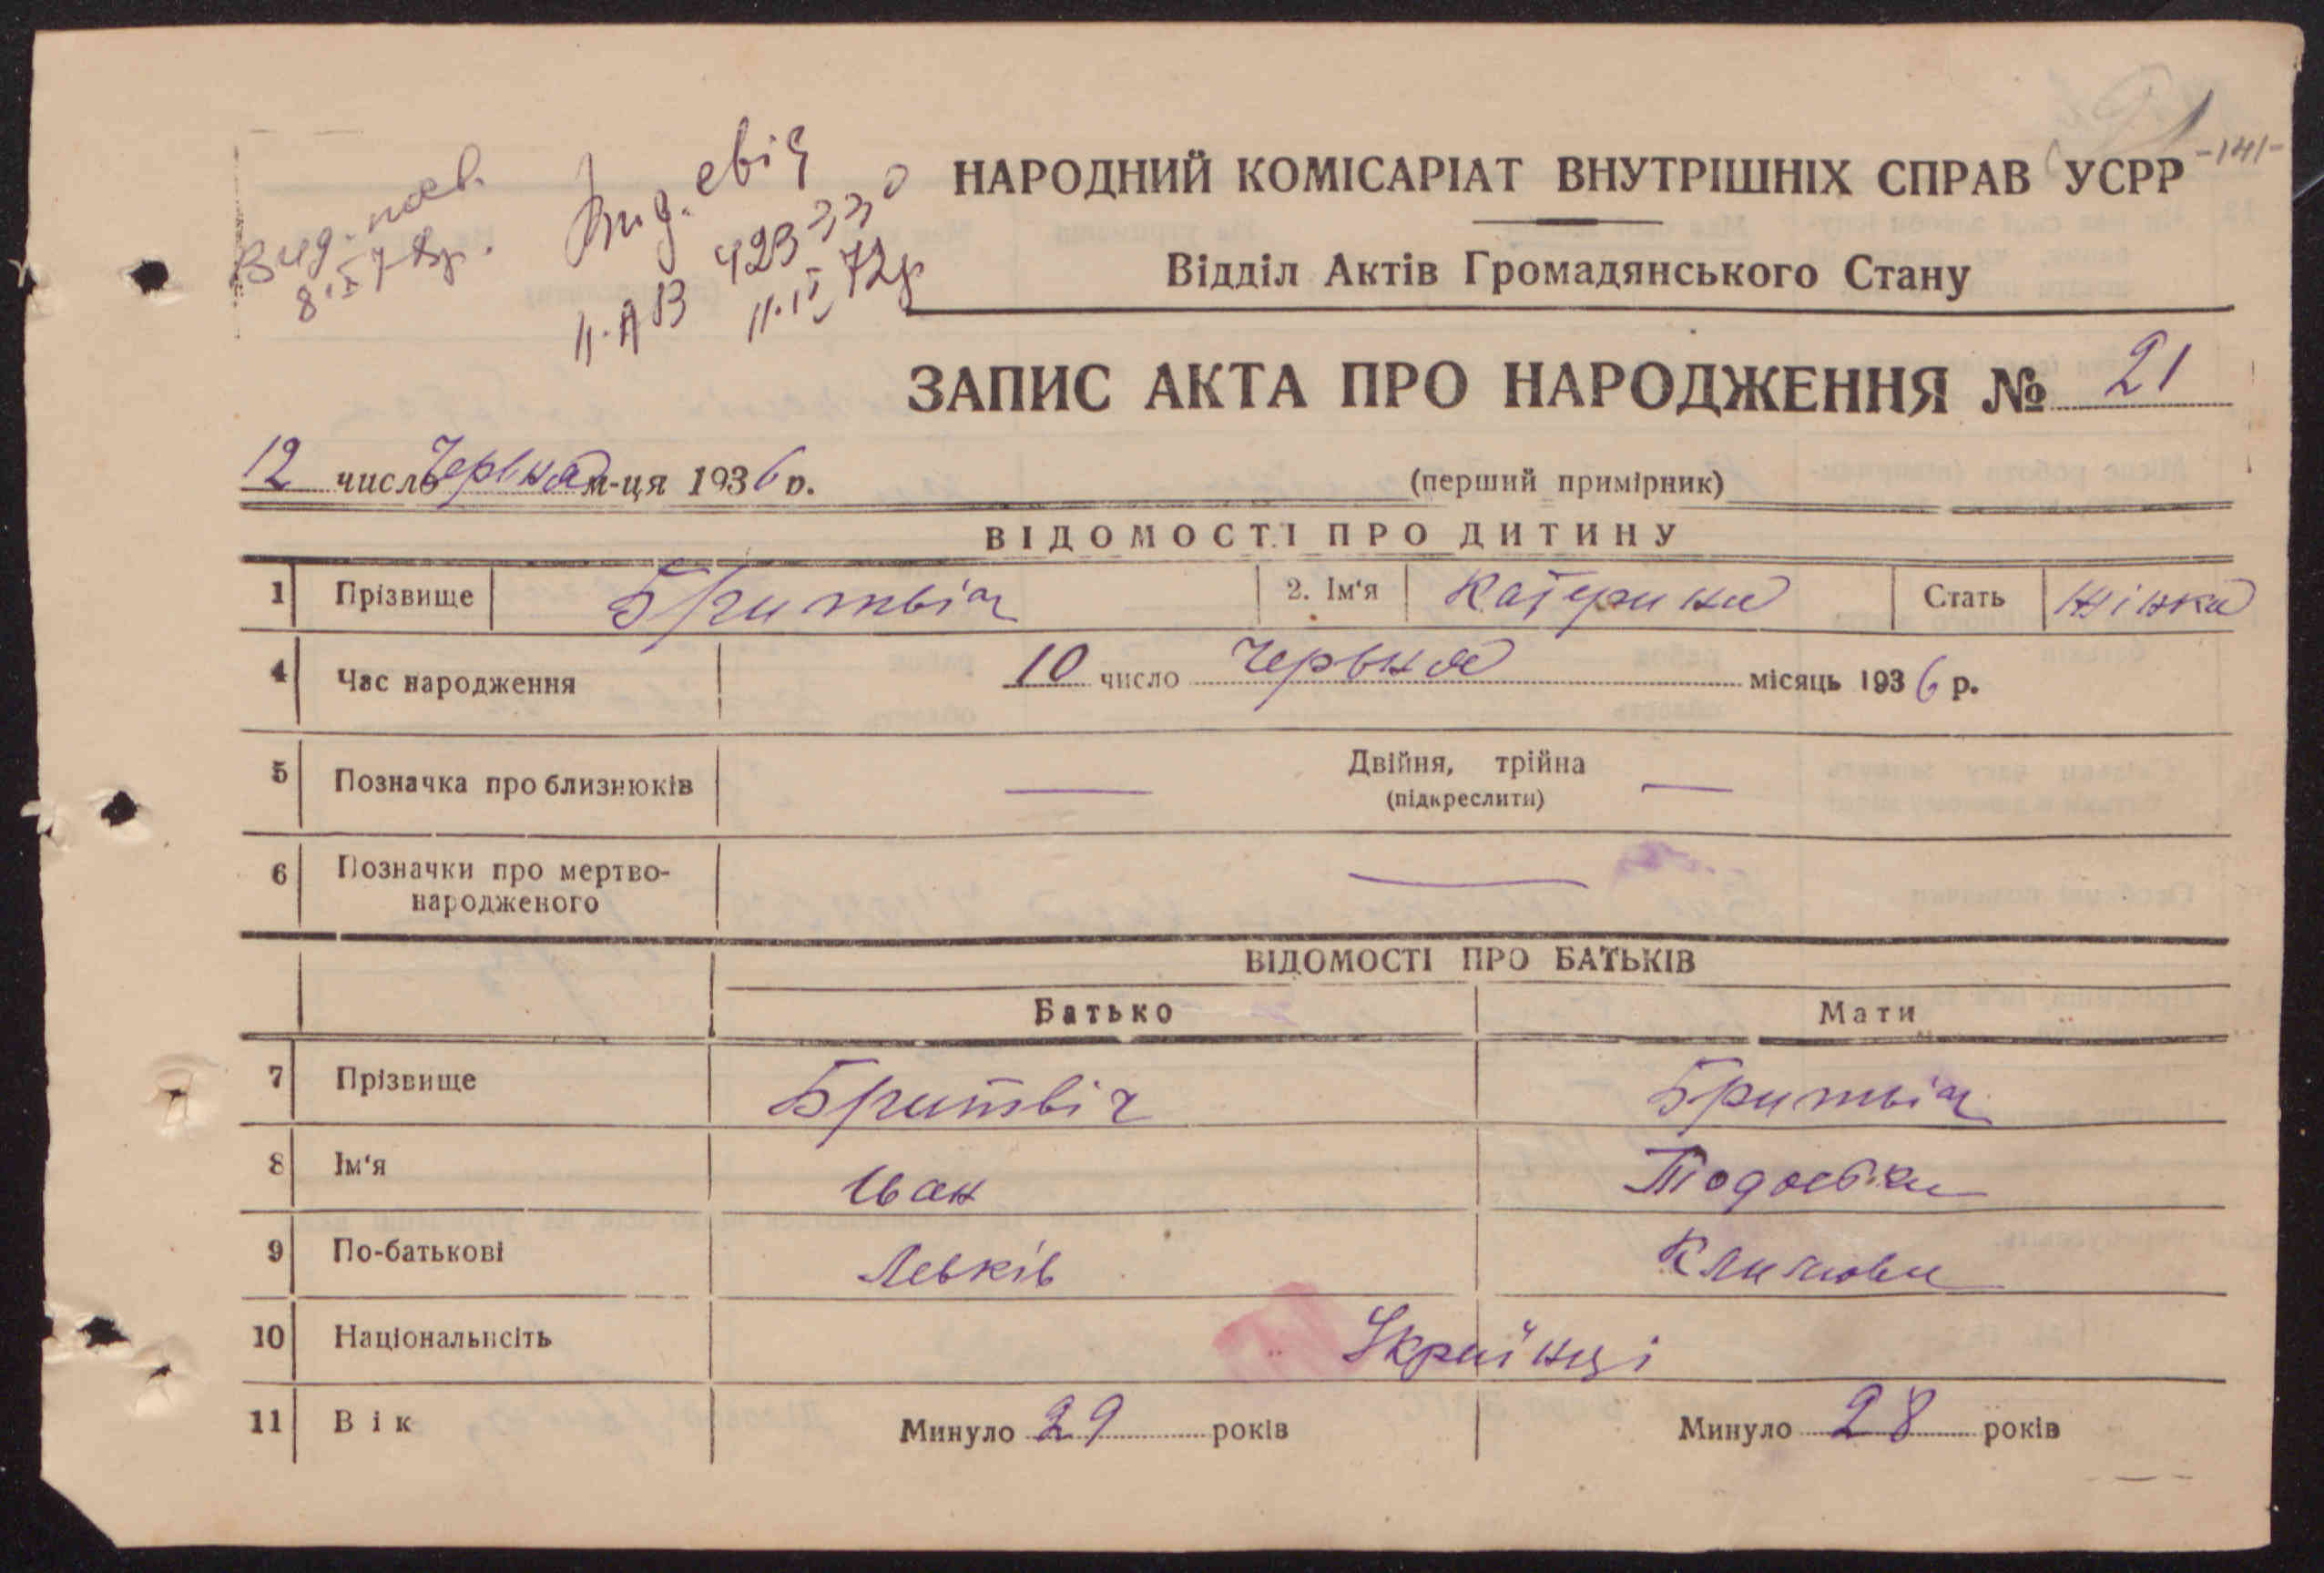 -141-
НАРОДНИЙ КОМІСАРІАТ ВНУТРІШНІХ СПРАВ УСРР
Відділ Актів Громадянського Стану
Вид.
8.IV 72р.
Вид. свід
II-АВ 423220
11.IV 72р
ЗАПИС АКТА ПРО НАРОДЖЕННЯ № 21
12 число Червня м-ця 1936 р. (перший примірник)
ВІДОМОСТІ ПРО ДИТИНУ
1 Прізвище Бритвіч 2. Ім'я Катерина Стать жінка
4 Час народження 10 число Червня місяць 1936 р.
5 Позначка про близнюків — Двійня, трійна —
(підкреслити)
6 Позначки про мертво-
народженого —
ВІДОМОСТІ ПРО БАТЬКІВ
Батько Мати
7 Прізвище Бритвіч Бритвіч
8 Ім'я Іван Тодоська
9 По-батькові Левків Климова
10 Національнсіть Українці
11 Вік Минуло 29 років Минуло 28 років